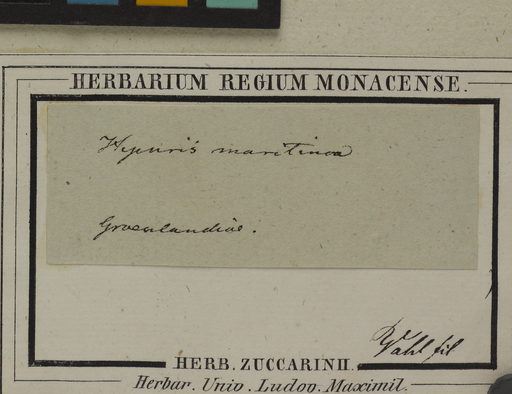 HERBARIUM REGIUM MONACENSE.
Hippuris maritima
Groenlandiae.
Vahl fil
HERB. ZUCCARINII.
Herbar. Univ. Ludov. Maximil.